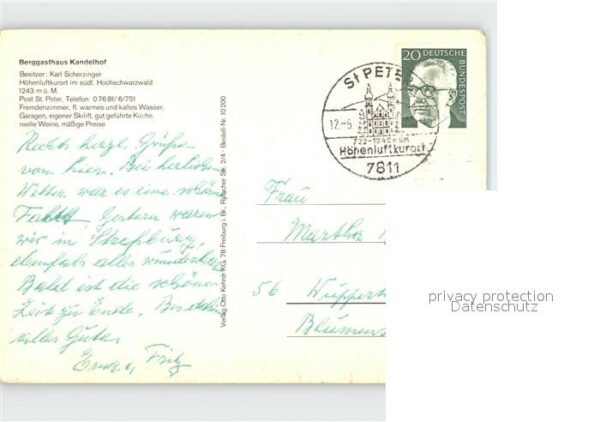 Berggasthaus Kandelhof
Besitzer: Karl Scherzinger
Höhenluftkurort im südl. Hochschwarzwald
1243 m ü. M.
Post St. Peter, Telefon 0 76 81 / 6/751
Fremdenzimmer, fl. warmes und kaltes Wasser,
Garagen, eigener Skilift, gut geführte Küche,
reelle Weine, mäßige Preise
Recht herzl. Grüße
von hier. Bei herrlich
Wetter war es eine schöne
Fahrt. Gestern waren
wir in Straßburg,
ebenfalls alles wunderba
Bald ist die schöne
Zeit zu Ende. Bis
alles Gute
Fritz
Verlag Otto Kehrle KG, 78 Freiburg i. Br., Str. 2/4 · Bestell-Nr. 10 200
20 DEUTSCHE
BUNDESPOST
St PETER
12.-6.
722-1242 m ü.M.
Höhenluftkurort
7811
Frau
Martha
56 Wuppert
Blumen
privacy protection
Datenschutz